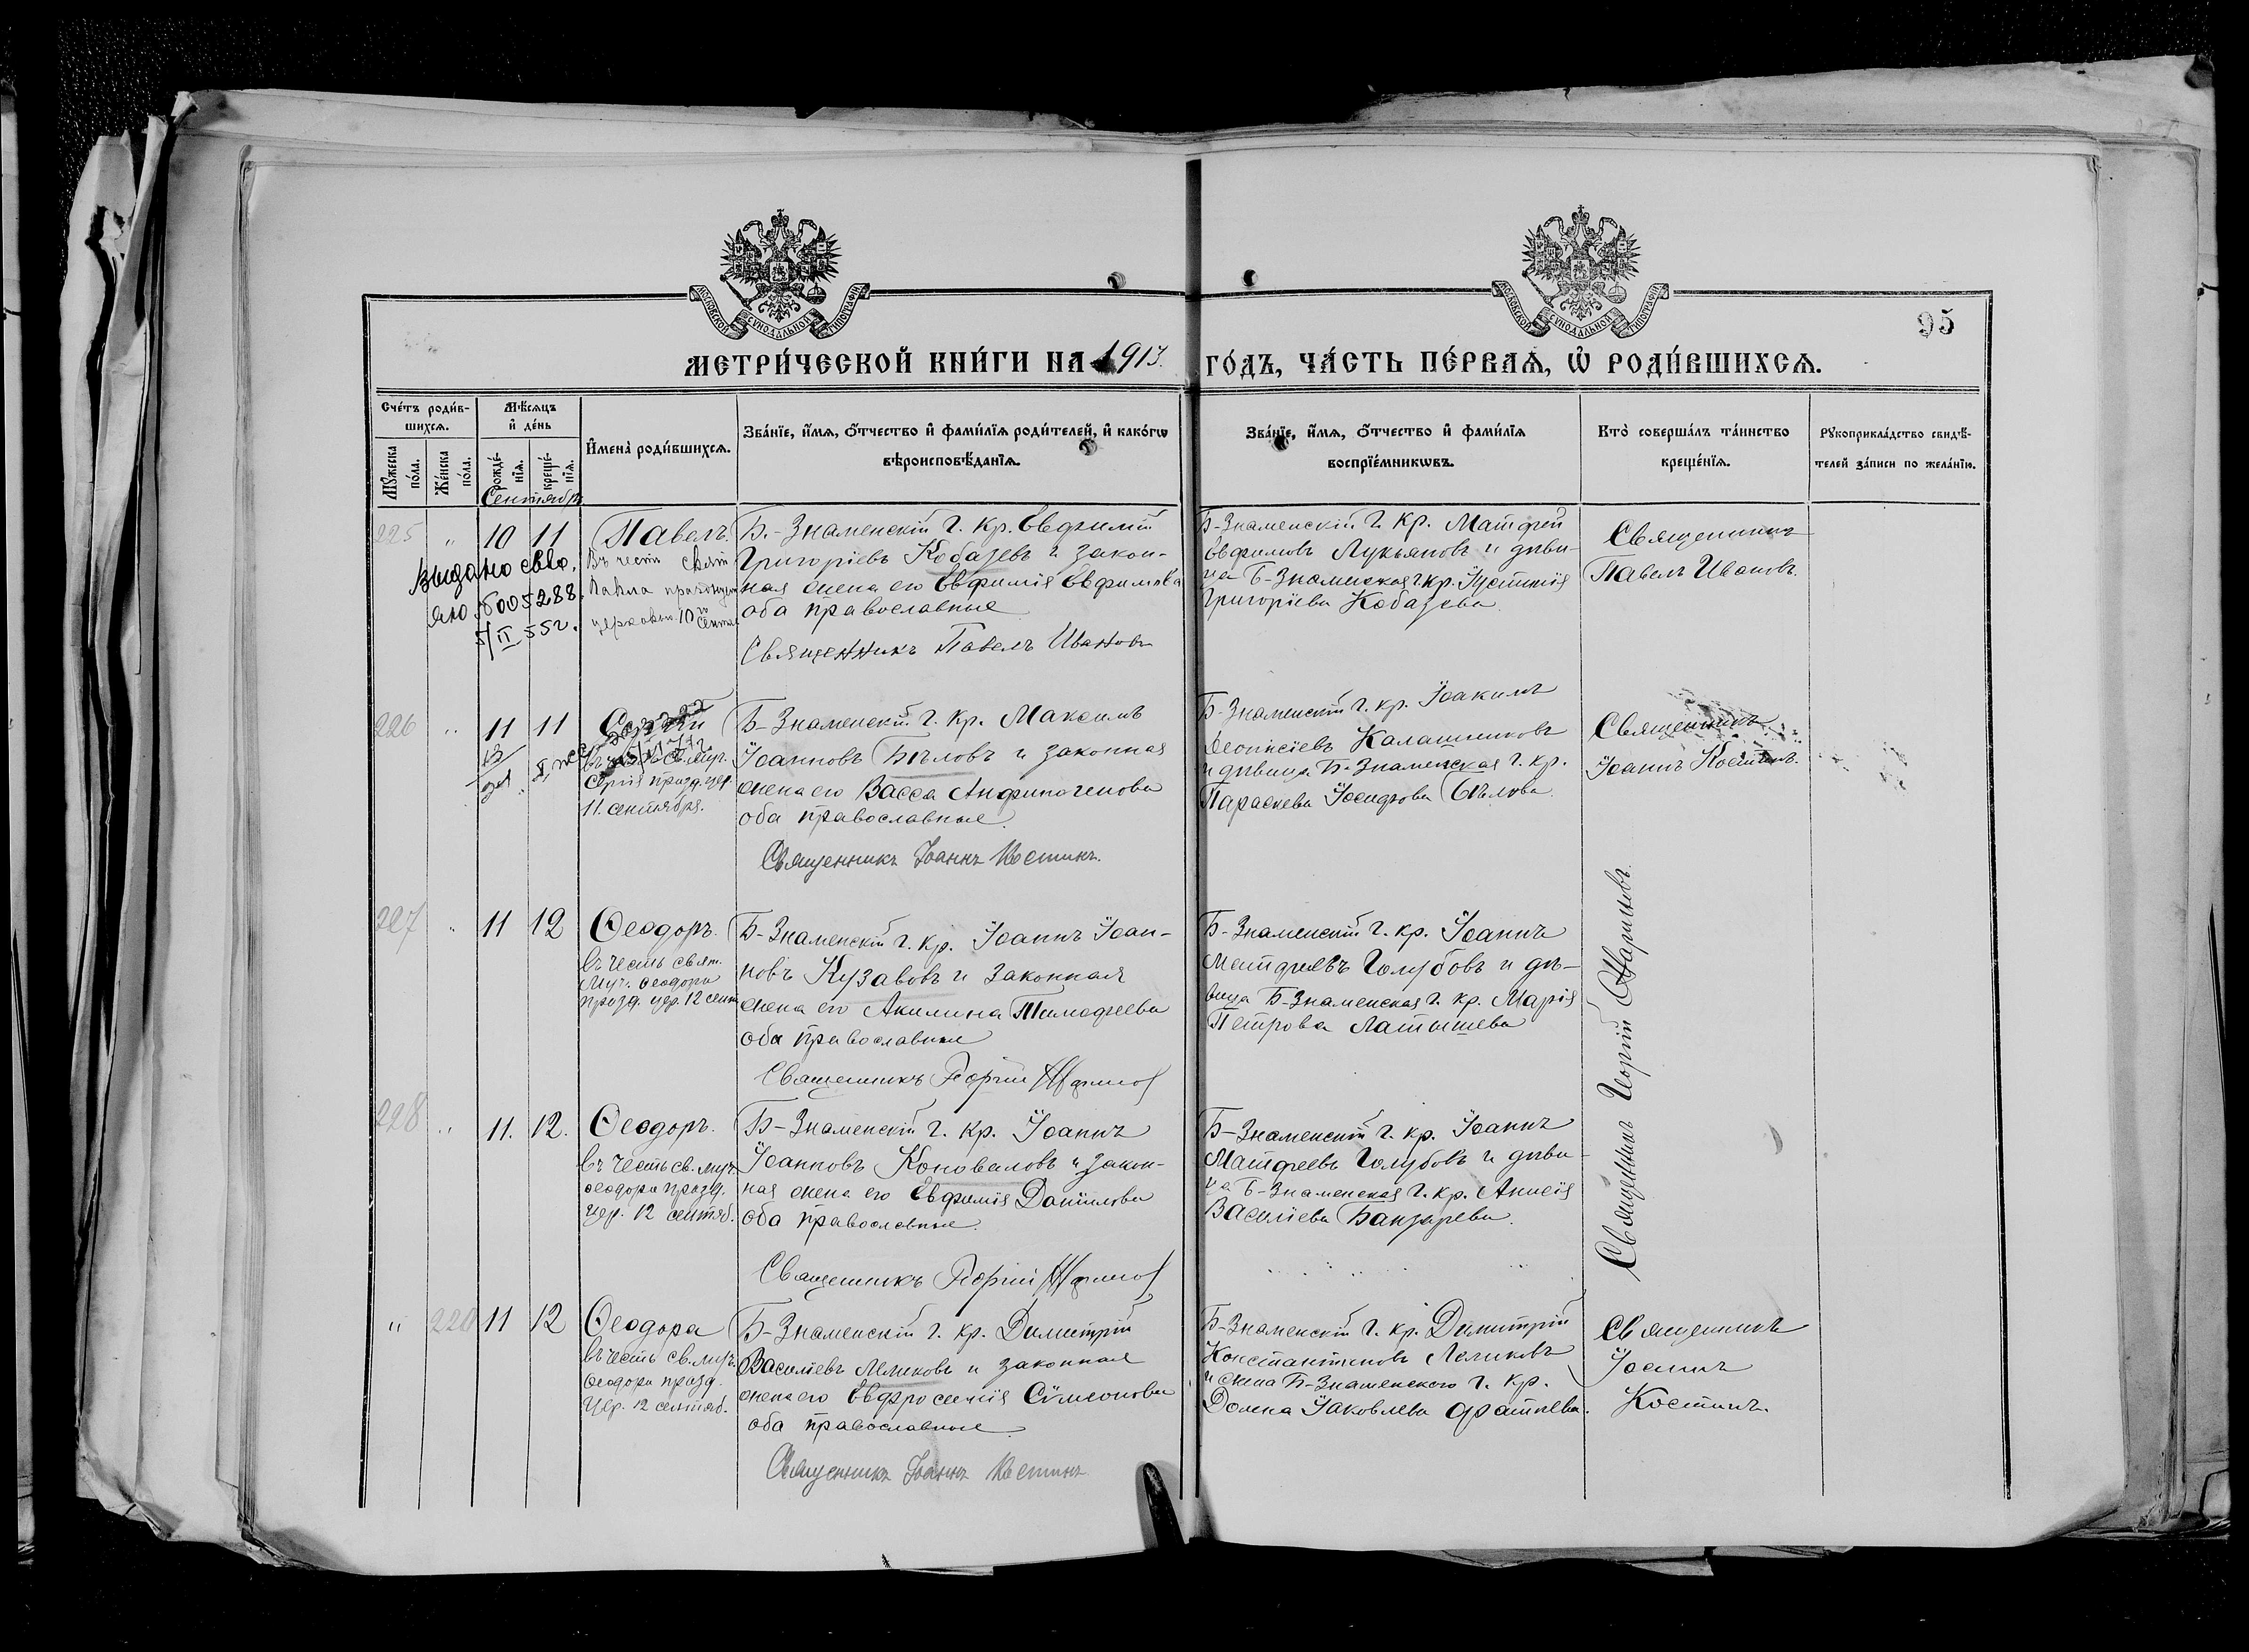 МОСКОВСКОЙ СѴНОДАЛЬНОЙ ТИПОГРАФІИ
МОСКОВСКОЙ СѴНОДАЛЬНОЙ ТИПОГРАФІИ
95
МЕТРИ́ЧЕСКОЙ КНИ́ГИ НА 1913. ГО́ДЪ, ЧА́СТЬ ПЕ́РВАЯ, Ѡ҆ РОДИ́ВШИХСЯ.
Сче́тъ роди́в-
шихся.
Мꙋжеска по́ла.
Же́нска по́ла.
Мѣ́сяцъ и҆ де́нь
рожде́-
нїя.
креще́-
нїя.
И҆мена̀ роди́вшихся.
Зва́нїе, и҆́мя, ѻ҆́тчество и҆ фами́лїя роди́телей, и҆ како́гѡ
вѣроисповѣ́данїя.
Зва́нїе, и҆́мя, ѻ҆́тчество и҆ фами́лїя
воспрїе́мникѡвъ.
Кто̀ соверша́лъ та́инство
креще́нїя.
Рꙋкоприкла́дство свидѣ́-
телей за́писи по жела́нїю.
Сентябрь
225 " 10 11 Павелъ.
Въ честь свят.
Павла празднуем.
церковью 10го Сентяб.
выдано свид.
ЯЮ №005288.
5/II 55г.
Б.-Знаменскій г. кр. Евфимій
Григоріевъ Кобазевъ и закон-
ная жена его Евфимія Евфимова
оба православные
Священникъ Павелъ Ивановъ
Б-Знаменскій г. кр. Матфей
Евфимовъ Лукьяновъ и дѣви-
ца Б-Знаменская г. кр. Іустинія
Григоріева Кобазева.
Священникъ
Павелъ Ивановъ.
226 " 11 11 Сергій
въ честь св. муч.
Сергія празд. цер.
11. сентября.
Б-Знаменскій г. кр. Максимъ
Іоанновъ Бѣловъ и законная
жена его Васса Анфиногенова
оба православные.
Священникъ Іоаннъ Костинъ.
Б-Знаменскій г. кр. Іоакимъ
Деонисіевъ Калашниковъ
и дѣвица Б-Знаменская г. кр.
Параскева Іосифова Бѣлова.
Священникъ
Іоаннъ Костинъ.
227 " 11 12 Ѳеодоръ.
въ честь свят.
муч. Ѳеодора
празд. цер. 12 сент.
Б-Знаменскій г. кр. Іоаннъ Іоан-
новъ Кузавовъ и законная
жена его Акилина Тимофеева
оба православные
Священникъ Георгій
Б-Знаменскій г. кр. Іоаннъ
Матфеевъ Голубовъ и дѣ-
вица Б-Знаменская г. кр. Марія
Петрова Латышева
Священникъ Георгій
228 " 11. 12. Ѳеодоръ.
въ честь св. муч.
Ѳеодора празд.
цер. 12 сентяб.
Б-Знаменскій г. кр. Іоаннъ
Іоанновъ Коноваловъ и закон-
ная жена его Евфимія Даніилова
оба православные.
Священникъ Георгій
Б-Знаменскій г. кр. Іоаннъ
Матфеевъ Голубовъ и дѣви-
ца Б-Знаменская г. кр. Анисія
Василіева Банзарева.
" 220 11 12 Ѳеодора
въ честь св. муч.
Ѳеодоры празд.
Цер. 12 сентяб.
Б-Знаменскій г. кр. Димитрій
Василіевъ Леликовъ и законная
жена его Евфросинія Сѵмеонова
оба православные.
Священникъ Іоаннъ Костинъ.
Б-Знаменскій г. кр. Димитрій
Константиновъ Леликовъ
и жена Б-Знаменского г. кр.
Домна Іаковлева
Священникъ
Іоаннъ
Костинъ.